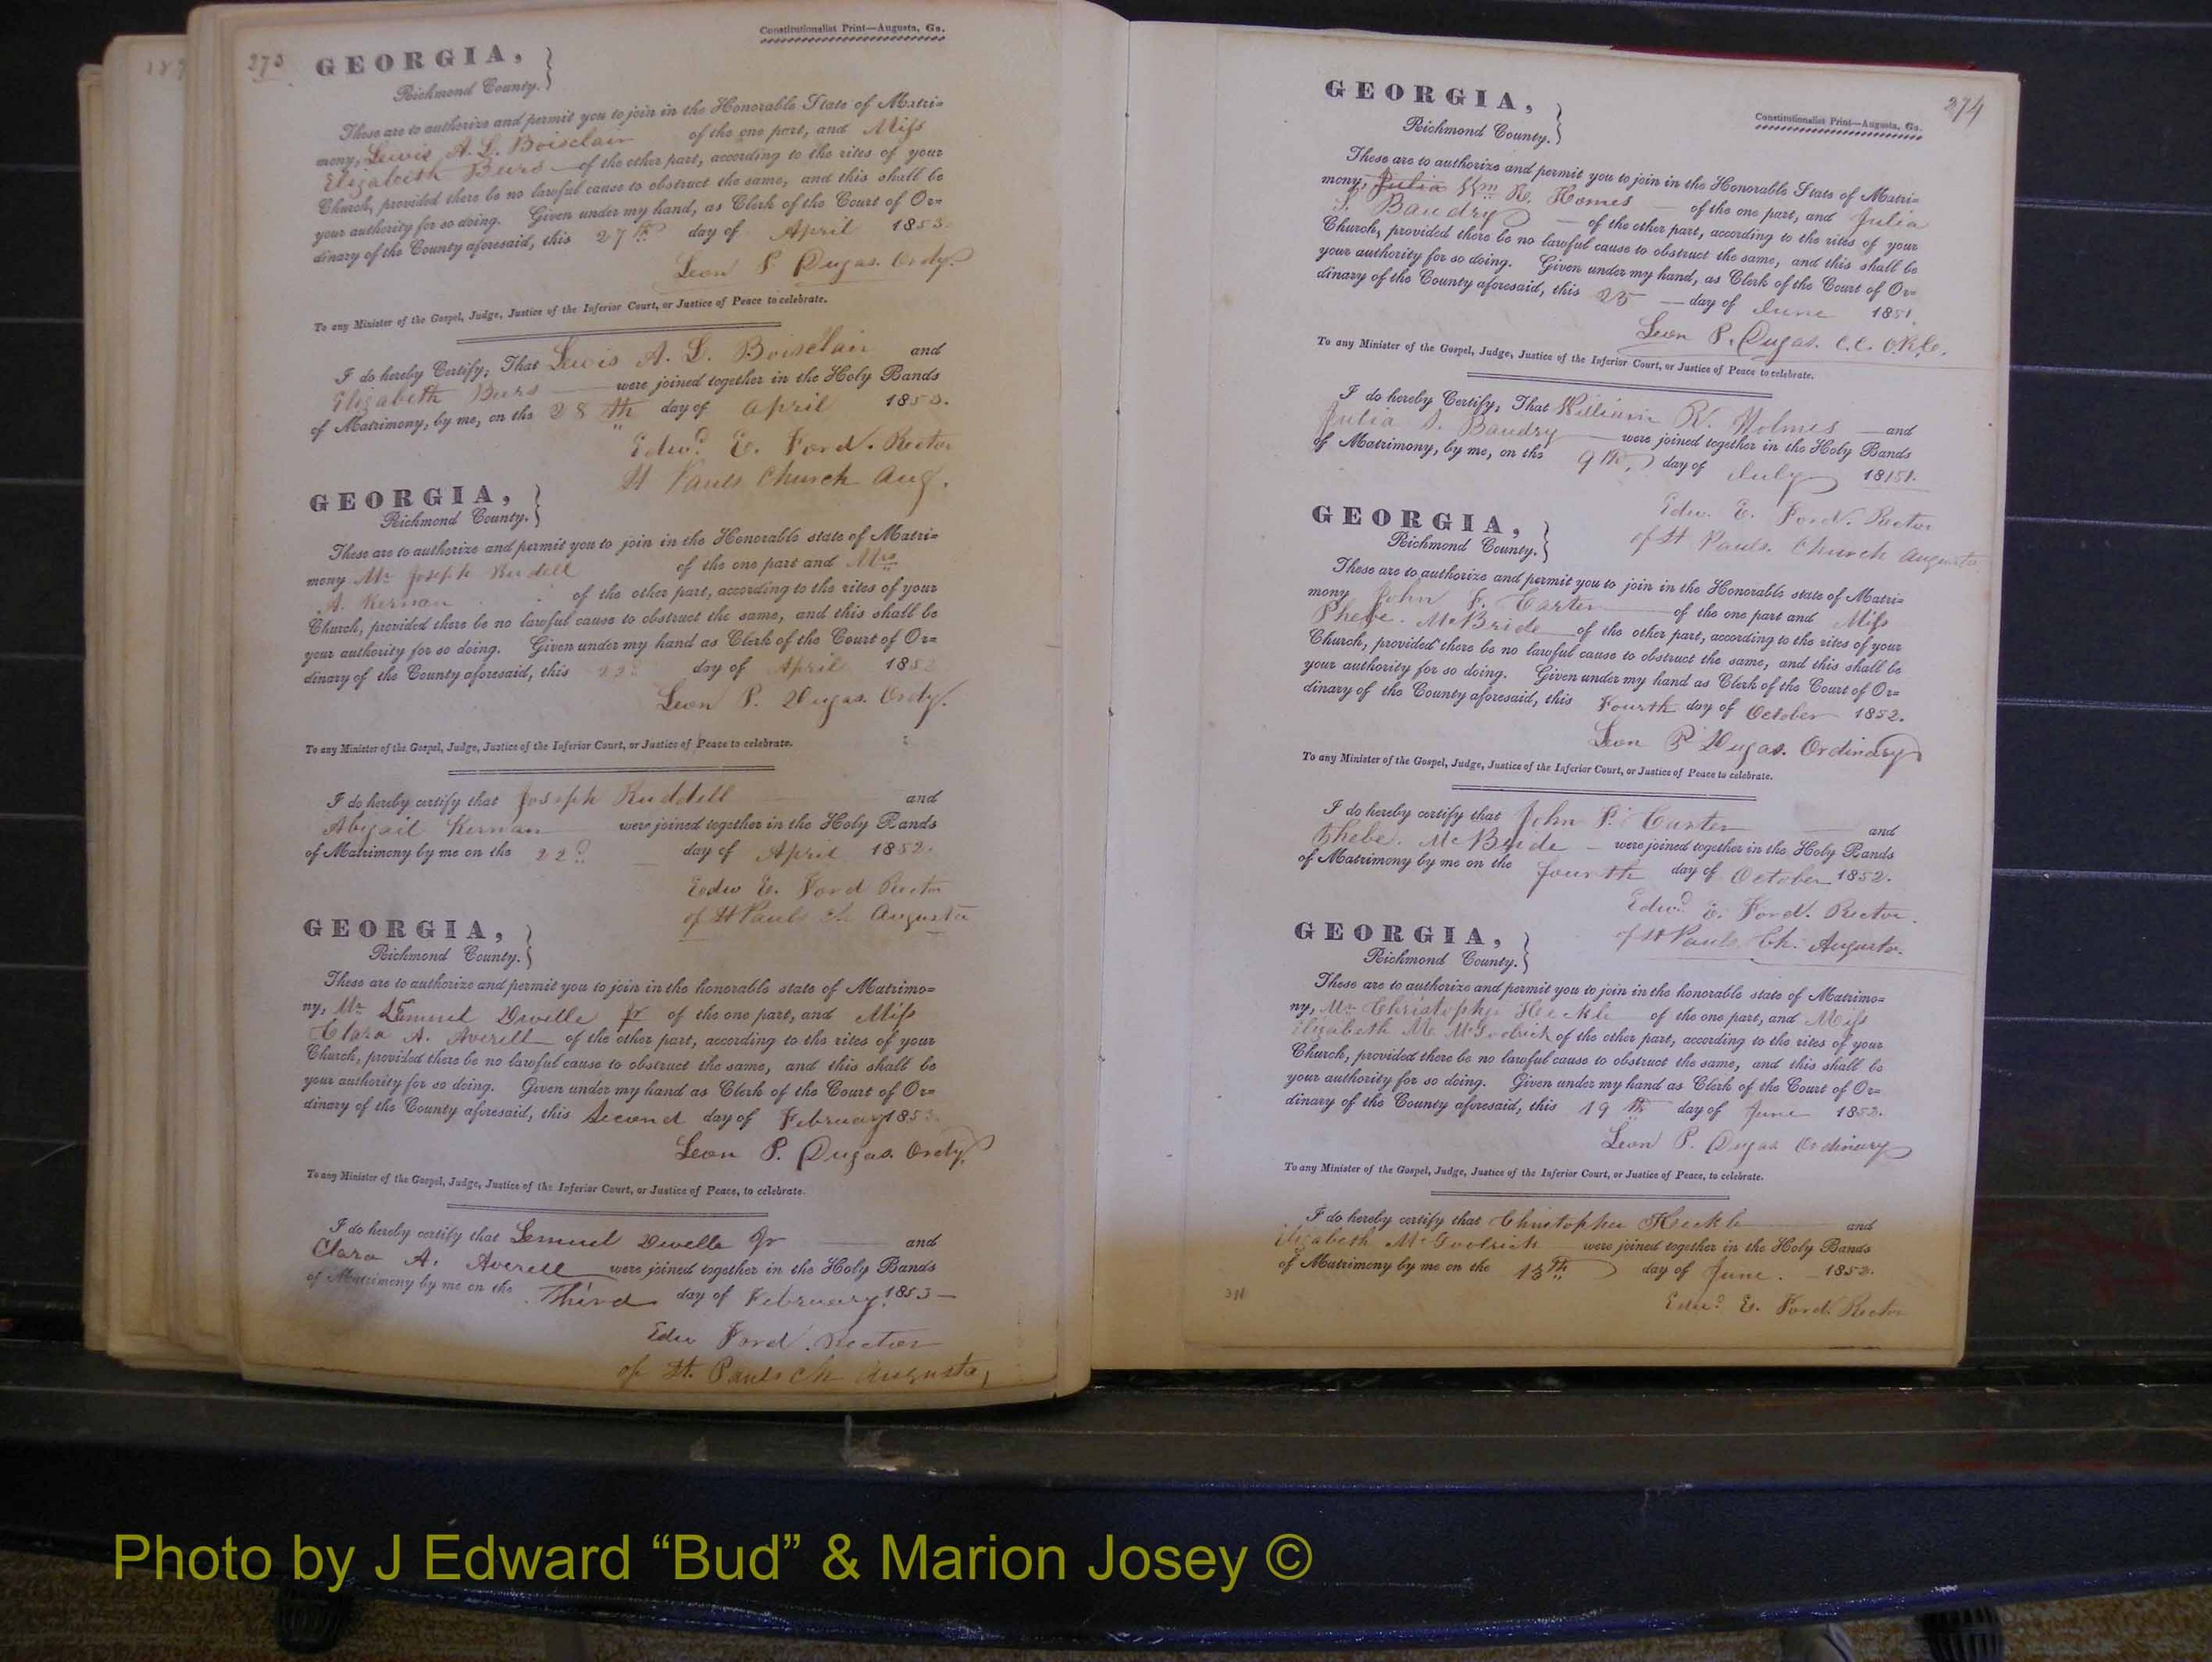 273
Constitutionalist Print—Augusta, Ga.
GEORGIA,
Richmond County.
These are to authorize and permit you to join in the Honorable State of Matri=
mony, Lewis A. L. Boisclair of the one part, and Miss
Elizabeth Beers of the other part, according to the rites of your
Church, provided there be no lawful cause to obstruct the same, and this shall be
your authority for so doing. Given under my hand, as Clerk of the Court of Or=
dinary of the County aforesaid, this 27th day of April 1853
Leon P. Dugas. Ordy.
To any Minister of the Gospel, Judge, Justice of the Inferior Court, or Justice of Peace to celebrate.
I do hereby Certify; That Lewis A. L. Boisclair and
Elizabeth Beers were joined together in the Holy Bands
of Matrimony, by me, on the 28th day of April 1853.
Edwd. E. Ford. Rector
St Pauls Church Aug.
GEORGIA,
Richmond County.
These are to authorize and permit you to join in the Honorable state of Matri=
mony Mr Joseph Ruddell of the one part and Mrs
A. Kernan of the other part, according to the rites of your
Church, provided there be no lawful cause to obstruct the same, and this shall be
your authority for so doing. Given under my hand as Clerk of the Court of Or=
dinary of the County aforesaid, this 22d day of April 1852
Leon P. Dugas. Ordy.
To any Minister of the Gospel, Judge, Justice of the Inferior Court, or Justice of Peace to celebrate.
I do hereby certify that Joseph Ruddell and
Abigail Kernan were joined together in the Holy Bands
of Matrimony by me on the 22d day of April 1852.
Edw E. Ford Rector
of St Pauls Ch Augusta
GEORGIA,
Richmond County.
These are to authorize and permit you to join in the honorable state of Matrimo=
ny, Mr Lemuel Dwelle Jr of the one part, and Miss
Clara A. Averell of the other part, according to the rites of your
Church, provided there be no lawful cause to obstruct the same, and this shall be
your authority for so doing. Given under my hand as Clerk of the Court of Or=
dinary of the County aforesaid, this Second day of February 1853
Leon P. Dugas. Ordy.
To any Minister of the Gospel, Judge, Justice of the Inferior Court, or Justice of Peace, to celebrate.
I do hereby certify that Lemuel Dwelle Jr and
Clara A. Averell were joined together in the Holy Bands
of Matrimony by me on the Third day of February 1853
Edw Ford. Rector
of St. Pauls Ch Augusta,
274
GEORGIA,
Constitutionalist Print—Augusta, Ga.
Richmond County.
These are to authorize and permit you to join in the Honorable State of Matri=
mony, Julia Wm R. Homes of the one part, and Julia
S. Baudry of the other part, according to the rites of your
Church, provided there be no lawful cause to obstruct the same, and this shall be
your authority for so doing. Given under my hand, as Clerk of the Court of Or=
dinary of the County aforesaid, this 25 day of June 1851
Leon P. Dugas. C.C.O.R.C.
To any Minister of the Gospel, Judge, Justice of the Inferior Court, or Justice of Peace to celebrate.
I do hereby Certify, That William R. Holmes and
Julia S. Baudry were joined together in the Holy Bands
of Matrimony, by me, on the 9th, day of July 1851.
Edw. E. Ford. Rector
of St Pauls. Church Augusta
GEORGIA,
Richmond County.
These are to authorize and permit you to join in the Honorable state of Matri=
mony John F. Carter of the one part and Miss
Phebe. McBride of the other part, according to the rites of your
Church, provided there be no lawful cause to obstruct the same, and this shall be
your authority for so doing. Given under my hand as Clerk of the Court of Or=
dinary of the County aforesaid, this Fourth day of October 1852.
Leon P Dugas. Ordinary
To any Minister of the Gospel, Judge, Justice of the Inferior Court, or Justice of Peace to celebrate.
I do hereby certify that John F. Carter and
Phebe. McBride were joined together in the Holy Bands
of Matrimony by me on the fourth day of October 1852.
Edwd. E. Ford. Rector.
of St Pauls Ch. Augusta.
GEORGIA,
Richmond County.
These are to authorize and permit you to join in the honorable state of Matrimo=
ny, Mr Christopher Heckle of the one part, and Miss
Elizabeth M. McGoodrick of the other part, according to the rites of your
Church, provided there be no lawful cause to obstruct the same, and this shall be
your authority for so doing. Given under my hand as Clerk of the Court of Or=
dinary of the County aforesaid, this 19th day of June 1852.
Leon P. Dugas Ordinary
To any Minister of the Gospel, Judge, Justice of the Inferior Court, or Justice of Peace, to celebrate.
I do hereby certify that Christopher Heckle and
Elizabeth McGoodrich were joined together in the Holy Bands
of Matrimony by me on the 13th day of June. 1852.
Edwd E. Ford. Rector
Photo by J Edward “Bud” & Marion Josey ©